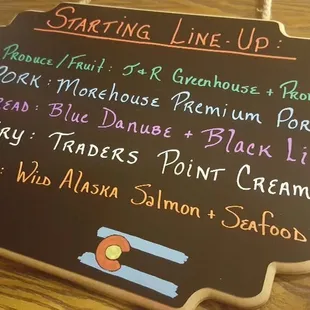 Starting Line-Up:
Produce/Fruit: J+R Greenhouse +
Pork: Morehouse Premium
Blue Danube + Black
Traders Point
Wild Alaska Salmon + Seafood